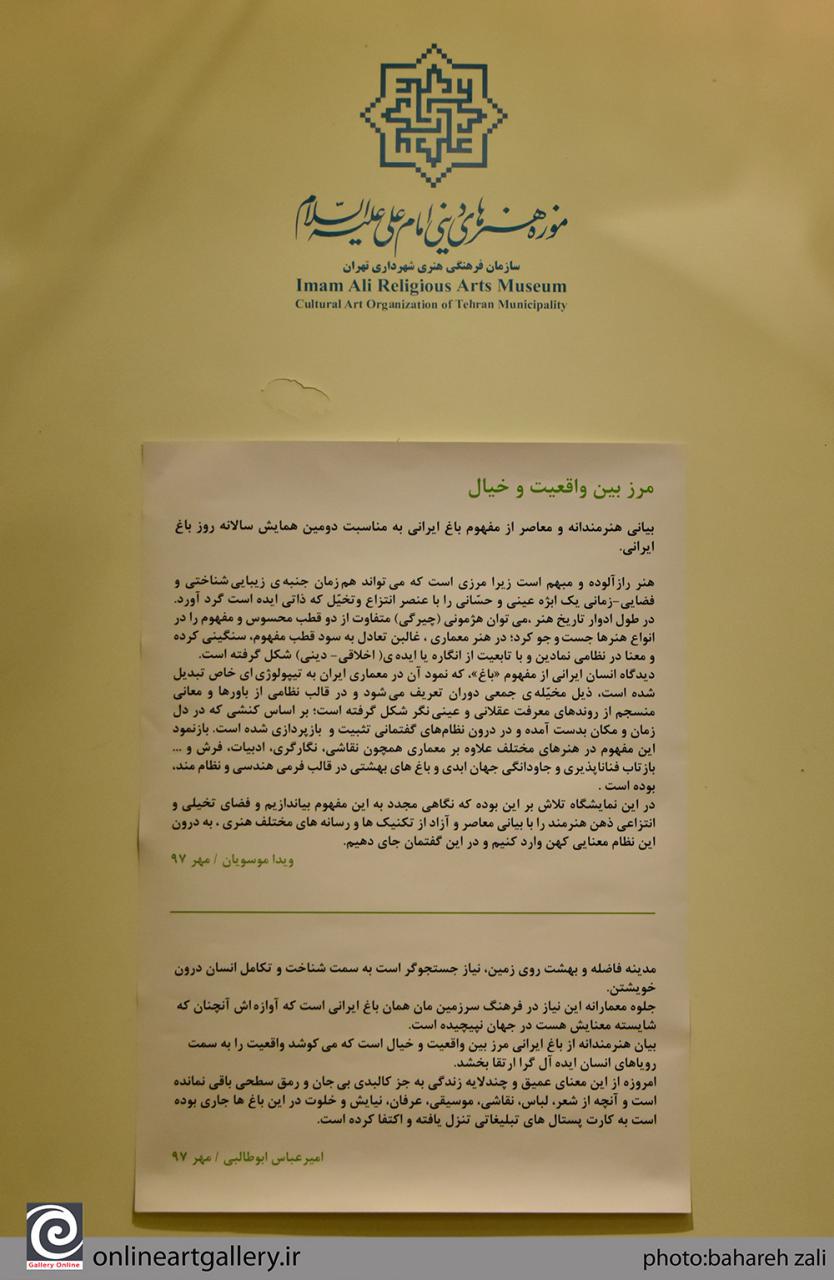 موزه هنرهای دینی امام علی علیه السلام
سازمان فرهنگی هنری شهرداری تهران
Imam Ali Religious Arts Museum
Cultural Art Organization of Tehran Municipality
مرز بین واقعیت و خیال
بیانی هنرمندانه و معاصر از مفهوم باغ ایرانی به مناسبت دومین همایش سالانه روز باغ
ایرانی.
هنر رازآلوده و مبهم است زیرا مرزی است که می تواند هم‌زمان جنبه‌ی زیبایی‌شناختی و
فضایی-زمانی یک ابژه عینی و حسّانی را با عنصر انتزاع وتخیّل که ذاتی ایده است گرد آورد.
در طول ادوار تاریخ هنر ،می توان هژمونی (چیرگی) متفاوت از دو قطب محسوس و مفهوم را در
انواع هنرها جست و جو کرد؛ در هنر معماری ، غالبن تعادل به سود قطب مفهوم، سنگینی کرده
و معنا در نظامی نمادین و با تابعیت از انگاره یا ایده‌ی( اخلاقی- دینی) شکل گرفته است.
دیدگاه انسان ایرانی از مفهوم «باغ»، که نمود آن در معماری ایران به تیپولوژی‌ای خاص تبدیل
شده است، ذیل مخیّله‌ی جمعی دوران تعریف می‌شود و در قالب نظامی از باورها و معانی
منسجم از روندهای معرفت عقلانی و عینی‌نگر شکل گرفته است؛ بر اساس کنشی که در دل
زمان و مکان بدست آمده و در درون نظام‌های گفتمانی تثبیت و بازپردازی شده است. بازنمود
این مفهوم در هنرهای مختلف علاوه بر معماری همچون نقاشی، نگارگری، ادبیات، فرش و ...
بازتاب فناناپذیری و جاودانگی جهان ابدی و باغ های بهشتی در قالب فرمی هندسی و نظام مند،
بوده است .
در این نمایشگاه تلاش بر این بوده که نگاهی مجدد به این مفهوم بیاندازیم و فضای تخیلی و
انتزاعی ذهن هنرمند را با بیانی معاصر و آزاد از تکنیک ها و رسانه های مختلف هنری ، به درون
این نظام معنایی کهن وارد کنیم و در این گفتمان جای دهیم.
ویدا موسویان / مهر ۹۷
مدینه فاضله و بهشت روی زمین، نیاز جستجوگر است به سمت شناخت و تکامل انسان درون
خویشتن.
جلوه معمارانه این نیاز در فرهنگ سرزمین مان همان باغ ایرانی است که آوازه‌اش آنچنان که
شایسته معنایش هست در جهان نپیچیده است.
بیان هنرمندانه از باغ ایرانی مرز بین واقعیت و خیال است که می‌کوشد واقعیت را به سمت
رویاهای انسان ایده آل گرا ارتقا بخشد.
امروزه از این معنای عمیق و چندلایه زندگی به جز کالبدی بی‌جان و رمق سطحی باقی نمانده
است و آنچه از شعر، لباس، نقاشی، موسیقی، عرفان، نیایش و خلوت در این باغ ها جاری بوده
است به کارت پستال های تبلیغاتی تنزل یافته و اکتفا کرده است.
امیرعباس ابوطالبی / مهر ۹۷
Gallery Online
onlineartgallery.ir
photo:bahareh zali